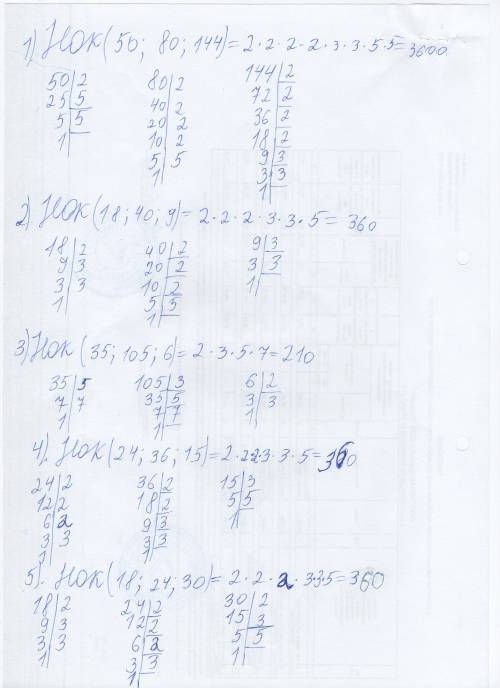 1) НОК (50; 80; 144) = 2·2·2·2·3·3·5·5 = 3600
50|2 80|2 144|2
25|5 40|2 72|2
5|5 20|2 36|2
1| 10|2 18|2
5|5 9|3
1| 3|3
1|
2) НОК (18; 40; 9) = 2·2·2·3·3·5 = 360
18|2 40|2 9|3
9|3 20|2 3|3
3|3 10|2 1|
1| 5|5
1|
3) НОК (35; 105; 6) = 2·3·5·7 = 210
35|5 105|3 6|2
7|7 35|5 3|3
1| 7|7 1|
1|
4). НОК (24; 36; 15) = 2·2·2·3·3·5 = 360
24|2 36|2 15|3
12|2 18|2 5|5
6|2 9|3 1|
3|3 3|3
1| 1|
5). НОК (18; 24; 30) = 2·2·2·3·3·5 = 360
18|2 24|2 30|2
9|3 12|2 15|3
3|3 6|2 5|5
1| 3|3 1|
1|